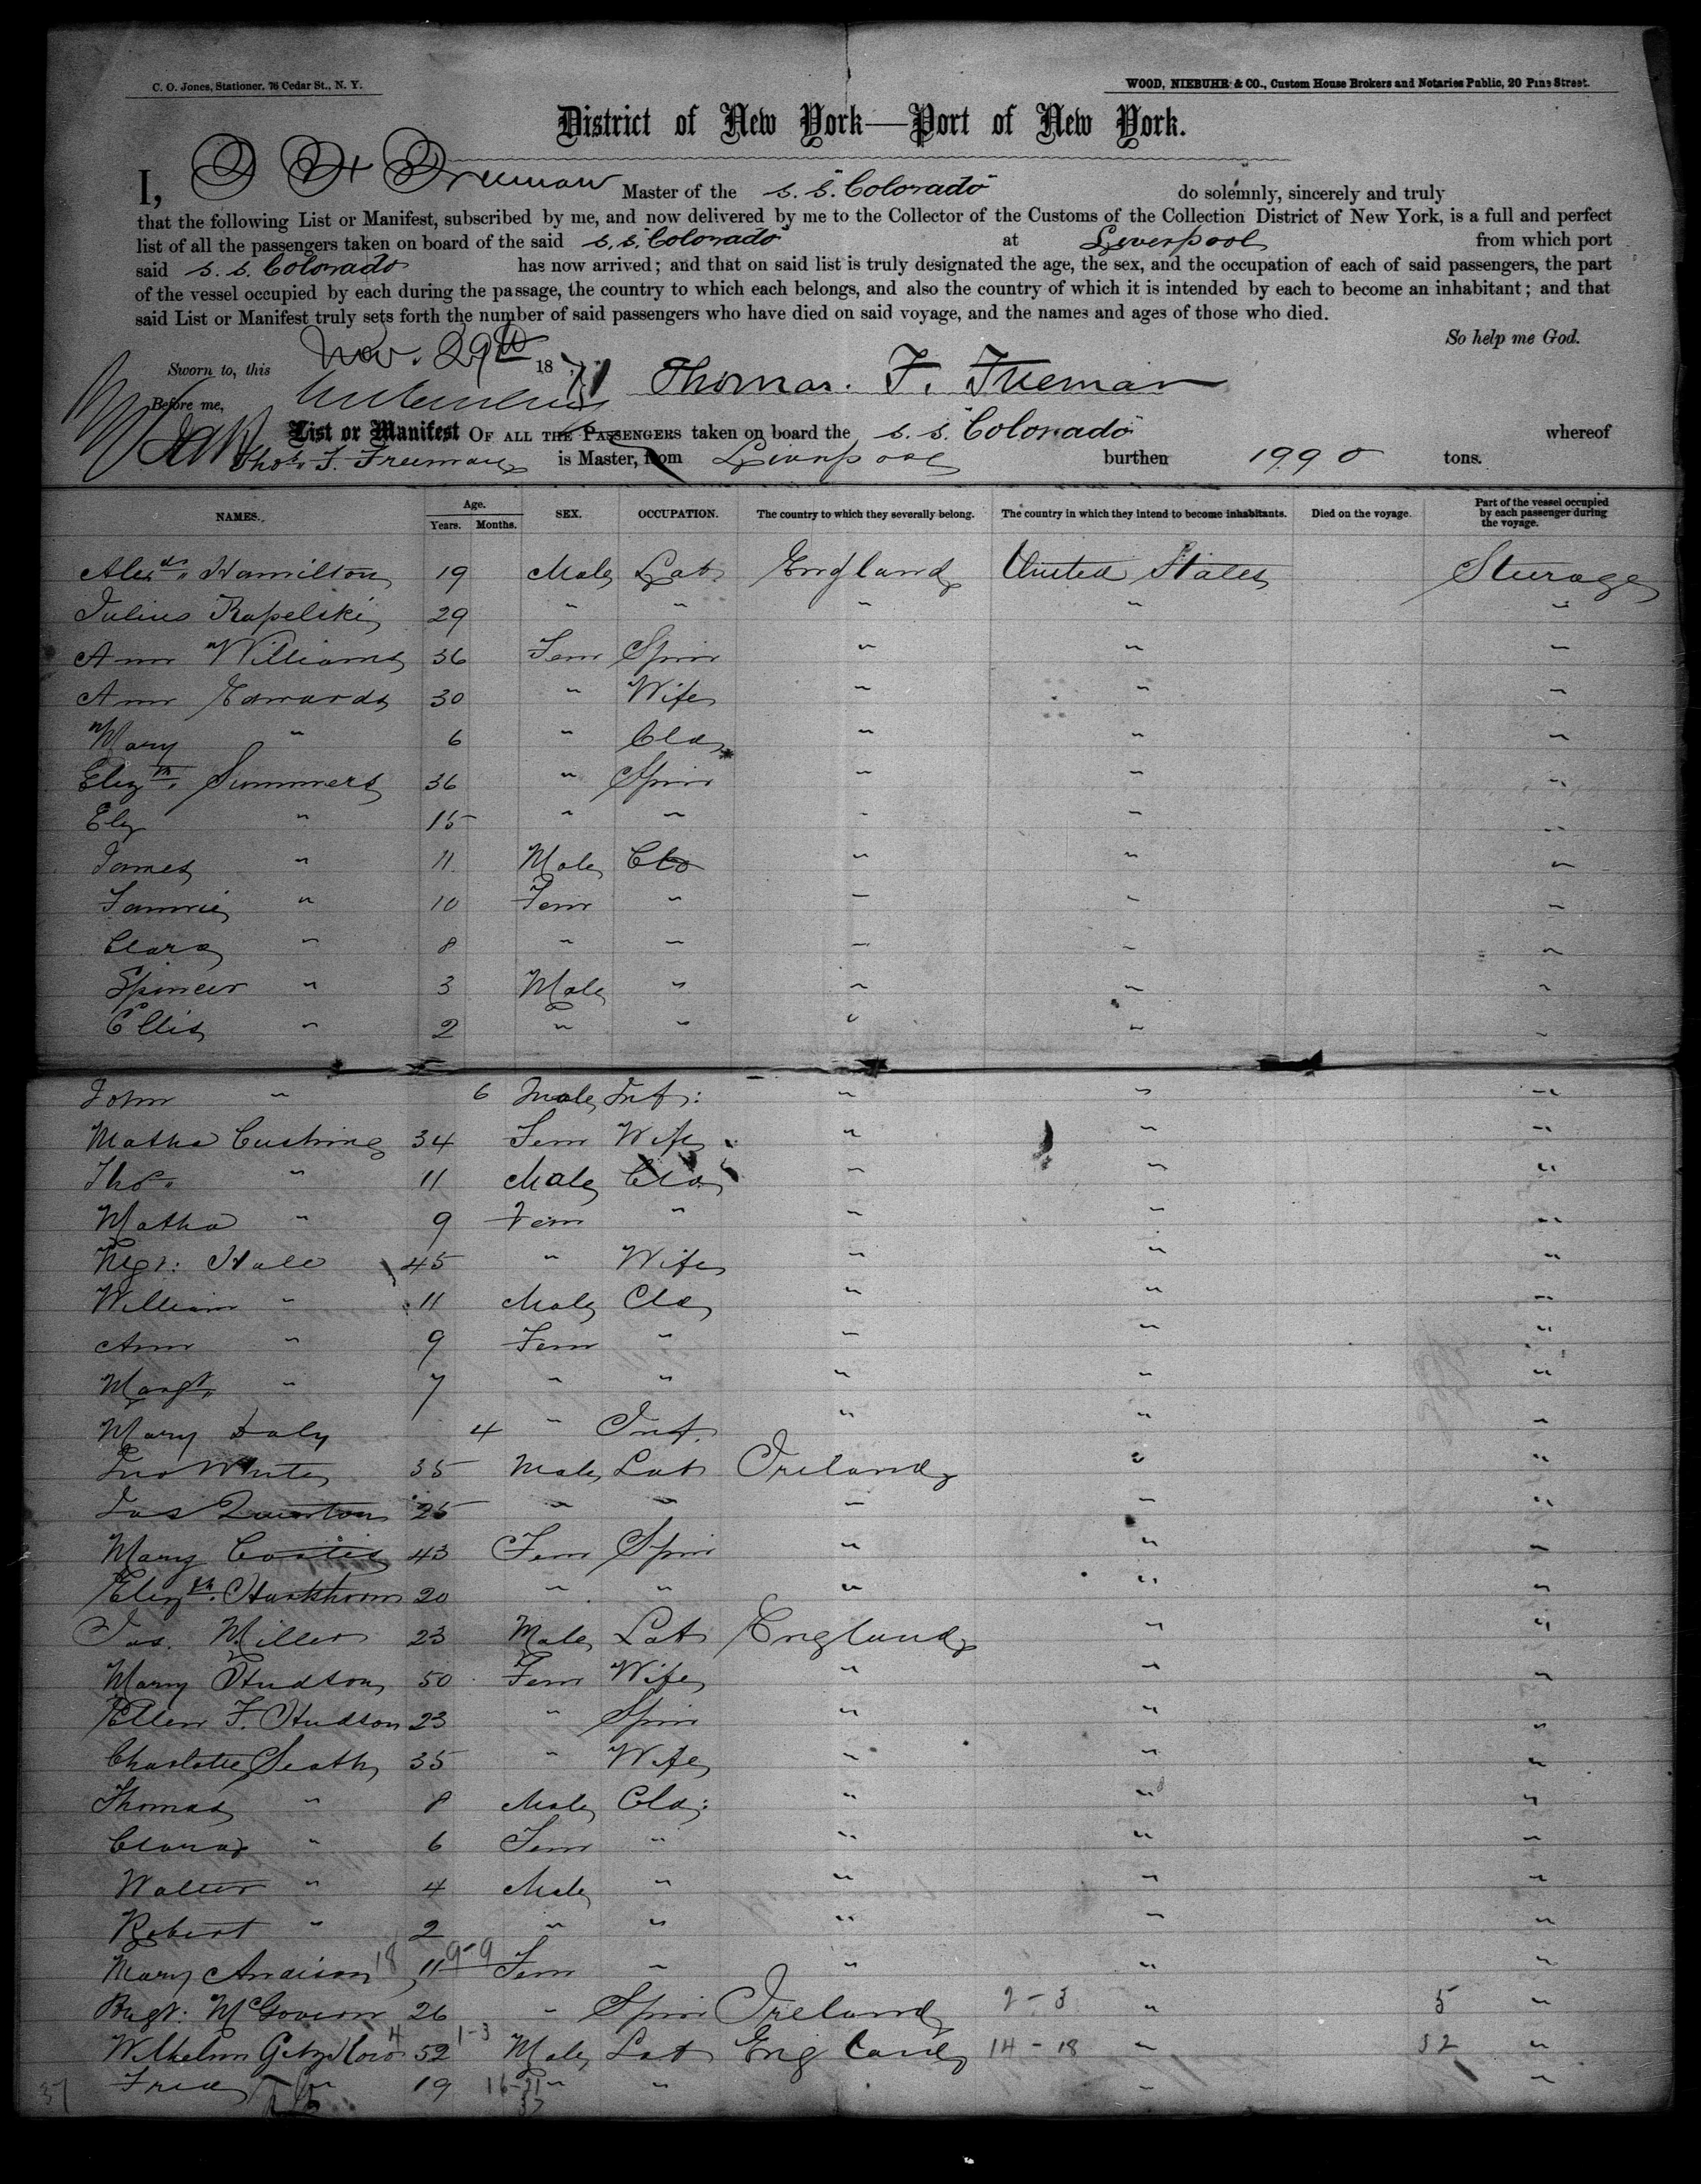 C. O. Jones, Stationer, 76 Cedar St., N. Y.
WOOD, NIEBUHR & CO., Custom House Brokers and Notaries Public, 20 Pine Street.
District of New York—Port of New York.
I, T F Freeman Master of the S. S. "Colorado" do solemnly, sincerely and truly
that the following List or Manifest, subscribed by me, and now delivered by me to the Collector of the Customs of the Collection District of New York, is a full and perfect
list of all the passengers taken on board of the said S. S. "Colorado" at Liverpool from which port
said S. S. Colorado has now arrived; and that on said list is truly designated the age, the sex, and the occupation of each of said passengers, the part
of the vessel occupied by each during the passage, the country to which each belongs, and also the country of which it is intended by each to become an inhabitant; and that
said List or Manifest truly sets forth the number of said passengers who have died on said voyage, and the names and ages of those who died.
So help me God.
Sworn to, this Nov. 29th 1871 Thomas. F. Freeman
Before me,
List or Manifest OF ALL THE PASSENGERS taken on board the S. S. "Colorado" whereof
Thos. F. Freeman is Master, from Liverpool burthen 1990 tons.
NAMES. Age. Years. Months. SEX. OCCUPATION. The country to which they severally belong. The country in which they intend to become inhabitants. Died on the voyage. Part of the vessel occupied by each passenger during the voyage.
Alexdr. Hamilton 19 Male Lab England United States Steerage
Julius Rapelski 29 " " " " "
Ann Williams 36 Fem Spin " " "
Ann Edwards 30 " Wife " " "
Mary " 6 " Cld " " "
Elizth. Summers 36 " Spin " " "
Eliz " 15 " " " " "
James " 11 Male Cld " " "
Fannie " 10 Fem " " " "
Clara " 8 " " " " "
Spincer " 3 Male " " " "
Ellis " 2 " " " " "
John " 6 Male Inf: " " "
Matha Cushing 34 Fem Wife " " "
Thos. " 11 Male Cld " " "
Matha " 9 Fem " " " "
Mgt: Hall 45 " Wife " " "
William " 11 Male Cld " " "
Ann " 9 Fem " " " "
Margt. " 7 " " " " "
Mary Daly 4 " Inf. " " "
Jno White 35 Male Lab Ireland " "
Jas 25 " " " " "
Mary 43 Fem Spin " " "
Elizth. 20 " " " " "
Jas. Miller 23 Male Lab England " "
Mary Hudson 50 Fem Wife " " "
Ellen F. Hudson 23 " Spin " " "
Charlotte Seath 35 " Wife " " "
Thomas " 8 Male Cld: " " "
Clara " 6 Fem " " " "
Walter " 4 Male " " " "
Robert " 2 " " " " "
Mary 18 11 9-9 Fem " " " "
Bugt: McGovern 26 " Spin Ireland 2-3 " 5 "
Wilhelm 4 52 1-3 Male Lab England 14-18 " 32 "
37 Fred " 19 16-21 " " " "
37